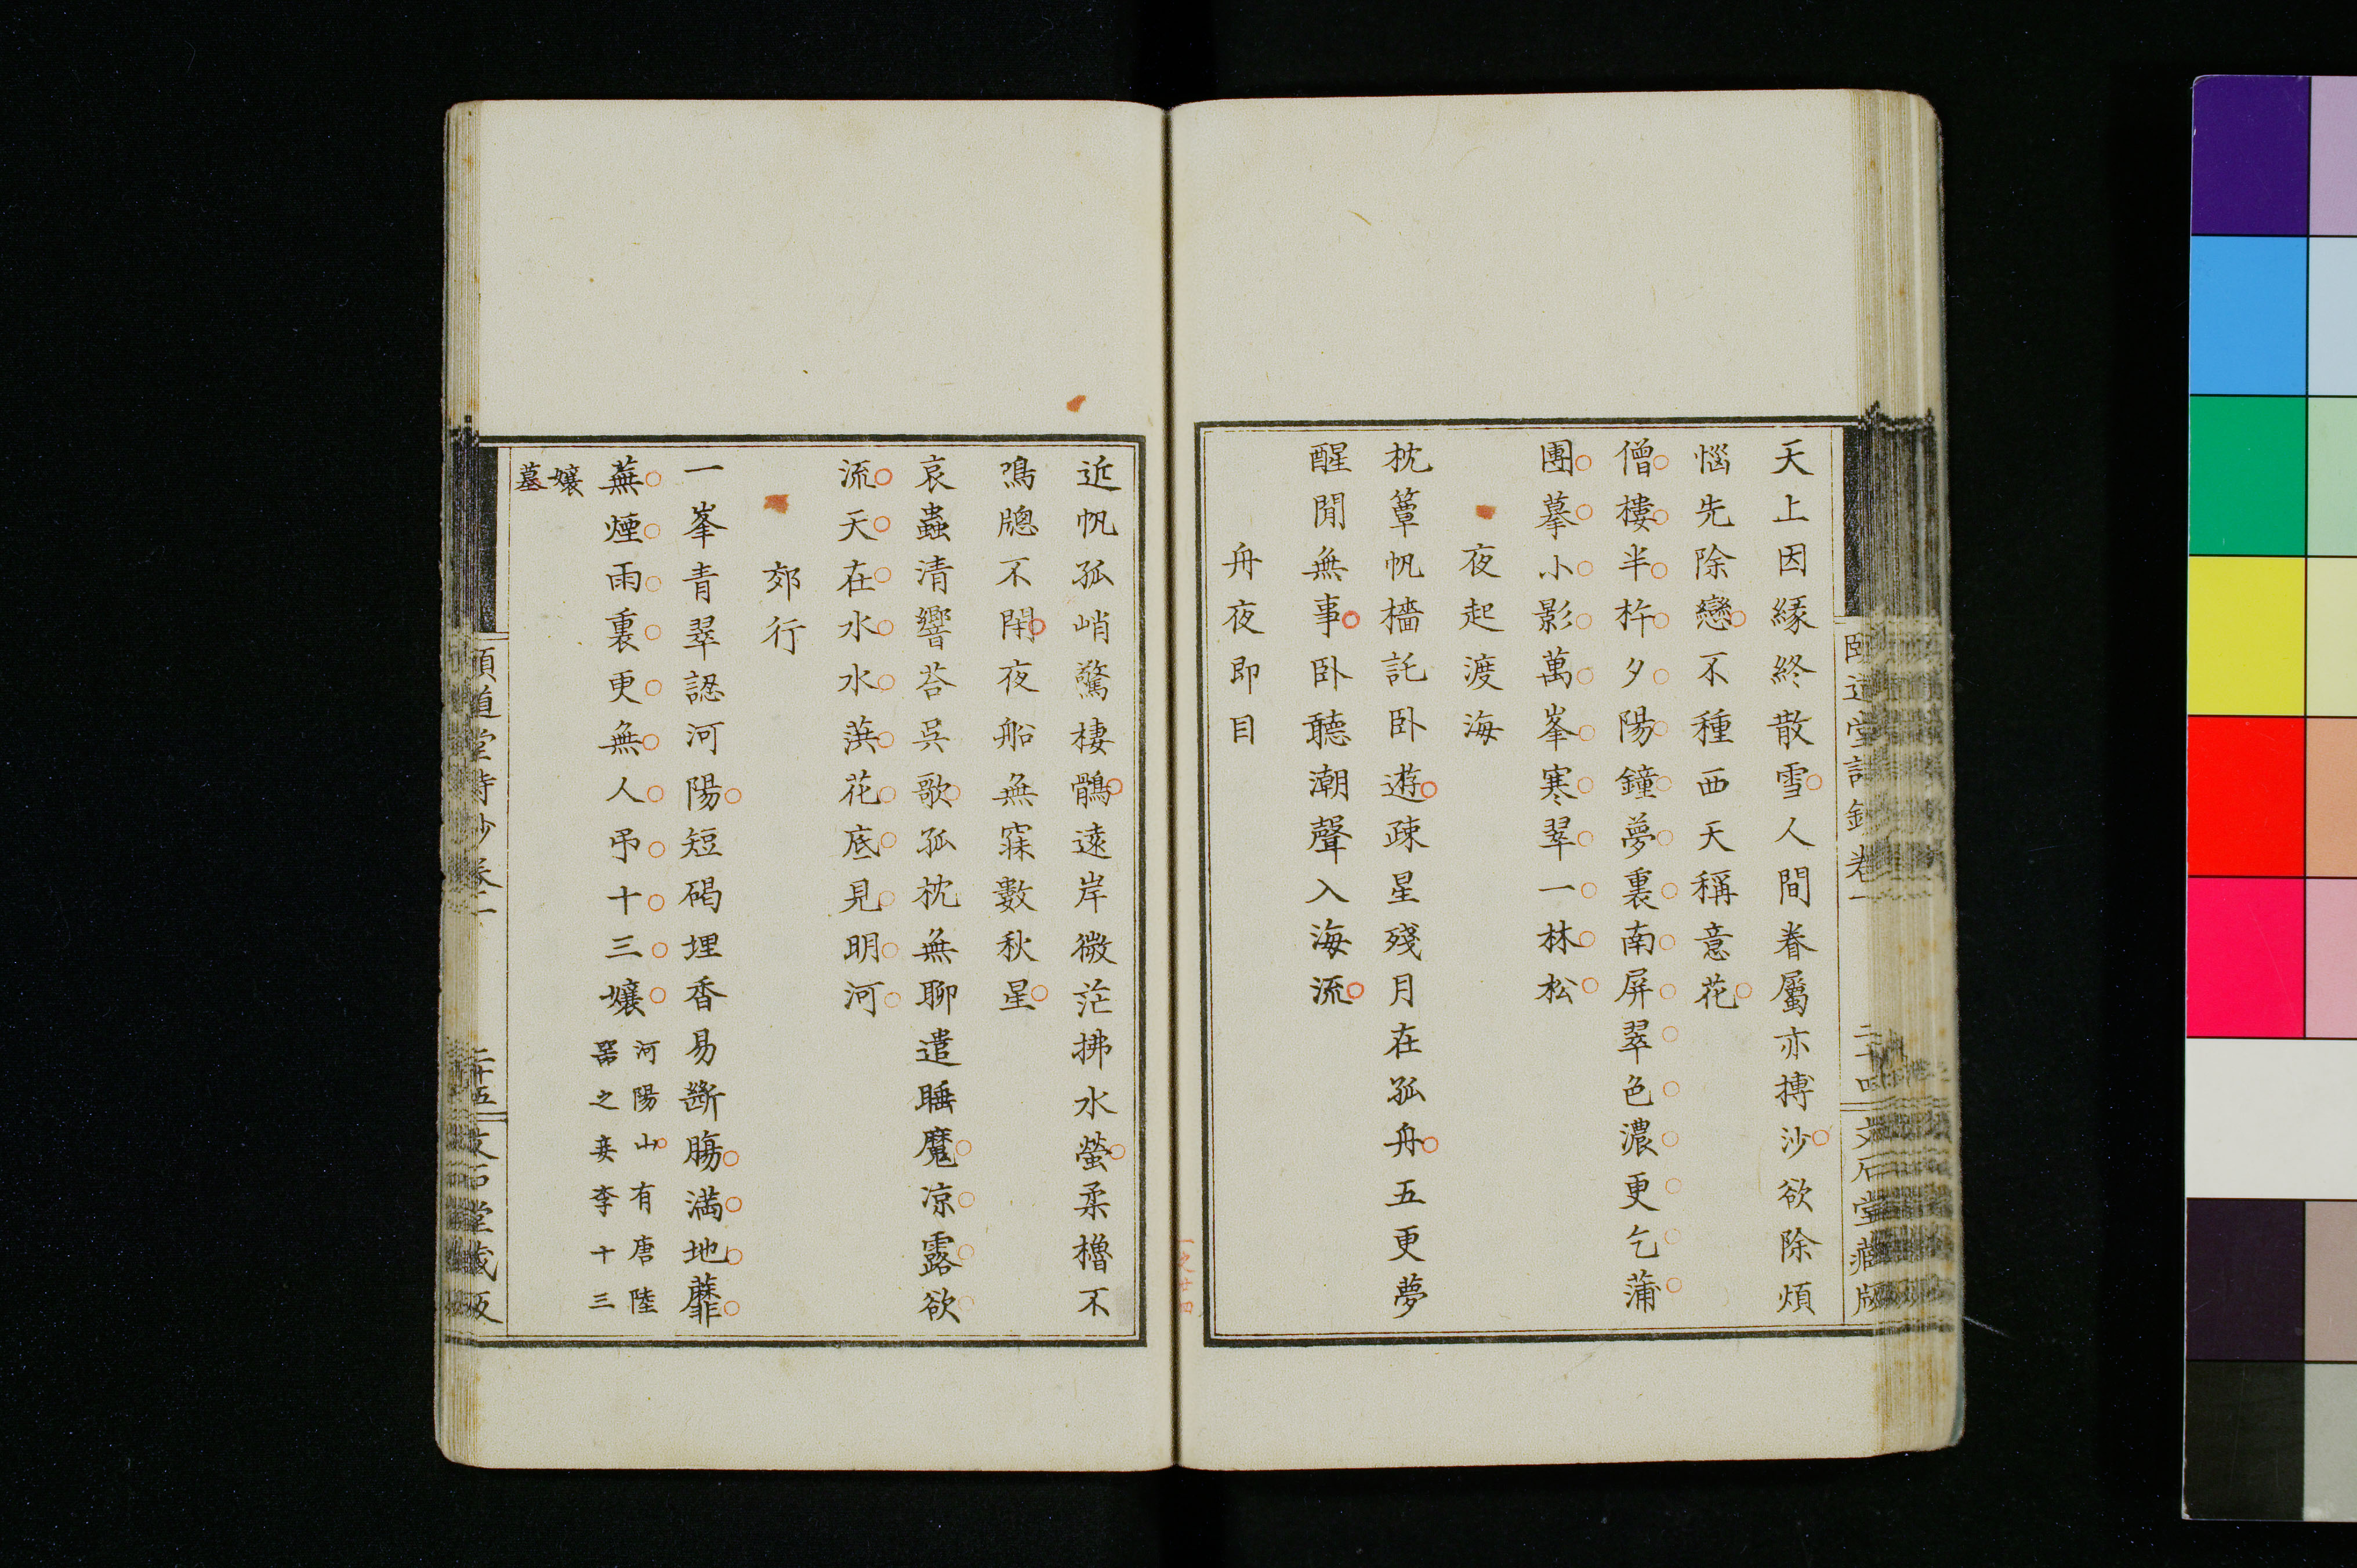 天上因緣終散雪人間眷屬亦摶沙欲除煩
惱先除戀不種西天稱意花
僧樓半杵夕陽鐘夢裏南屏翠色濃更乞蒲
團摹小影萬峯寒翠一林松
夜起渡海
枕簟帆檣託卧遊疎星殘月在孤舟五更夢
醒閒無事卧聽潮聲入海流
舟夜即目
近帆孤峭驚棲鶻遠岸微茫拂水螢柔櫓不
鳴牕不閉夜船無寐數秋星
哀蟲清響荅吳歌孤枕無聊遣睡魔凉露欲
流天在水水葓花底見明河
郊行
一峯青翠認河陽短碣埋香易斷腸滿地蘼
蕪煙雨裏更無人弔十三孃
河陽山有唐陸
器之妾李十三
孃
墓
頤道堂詩鈔卷二
二十五
文石堂藏版